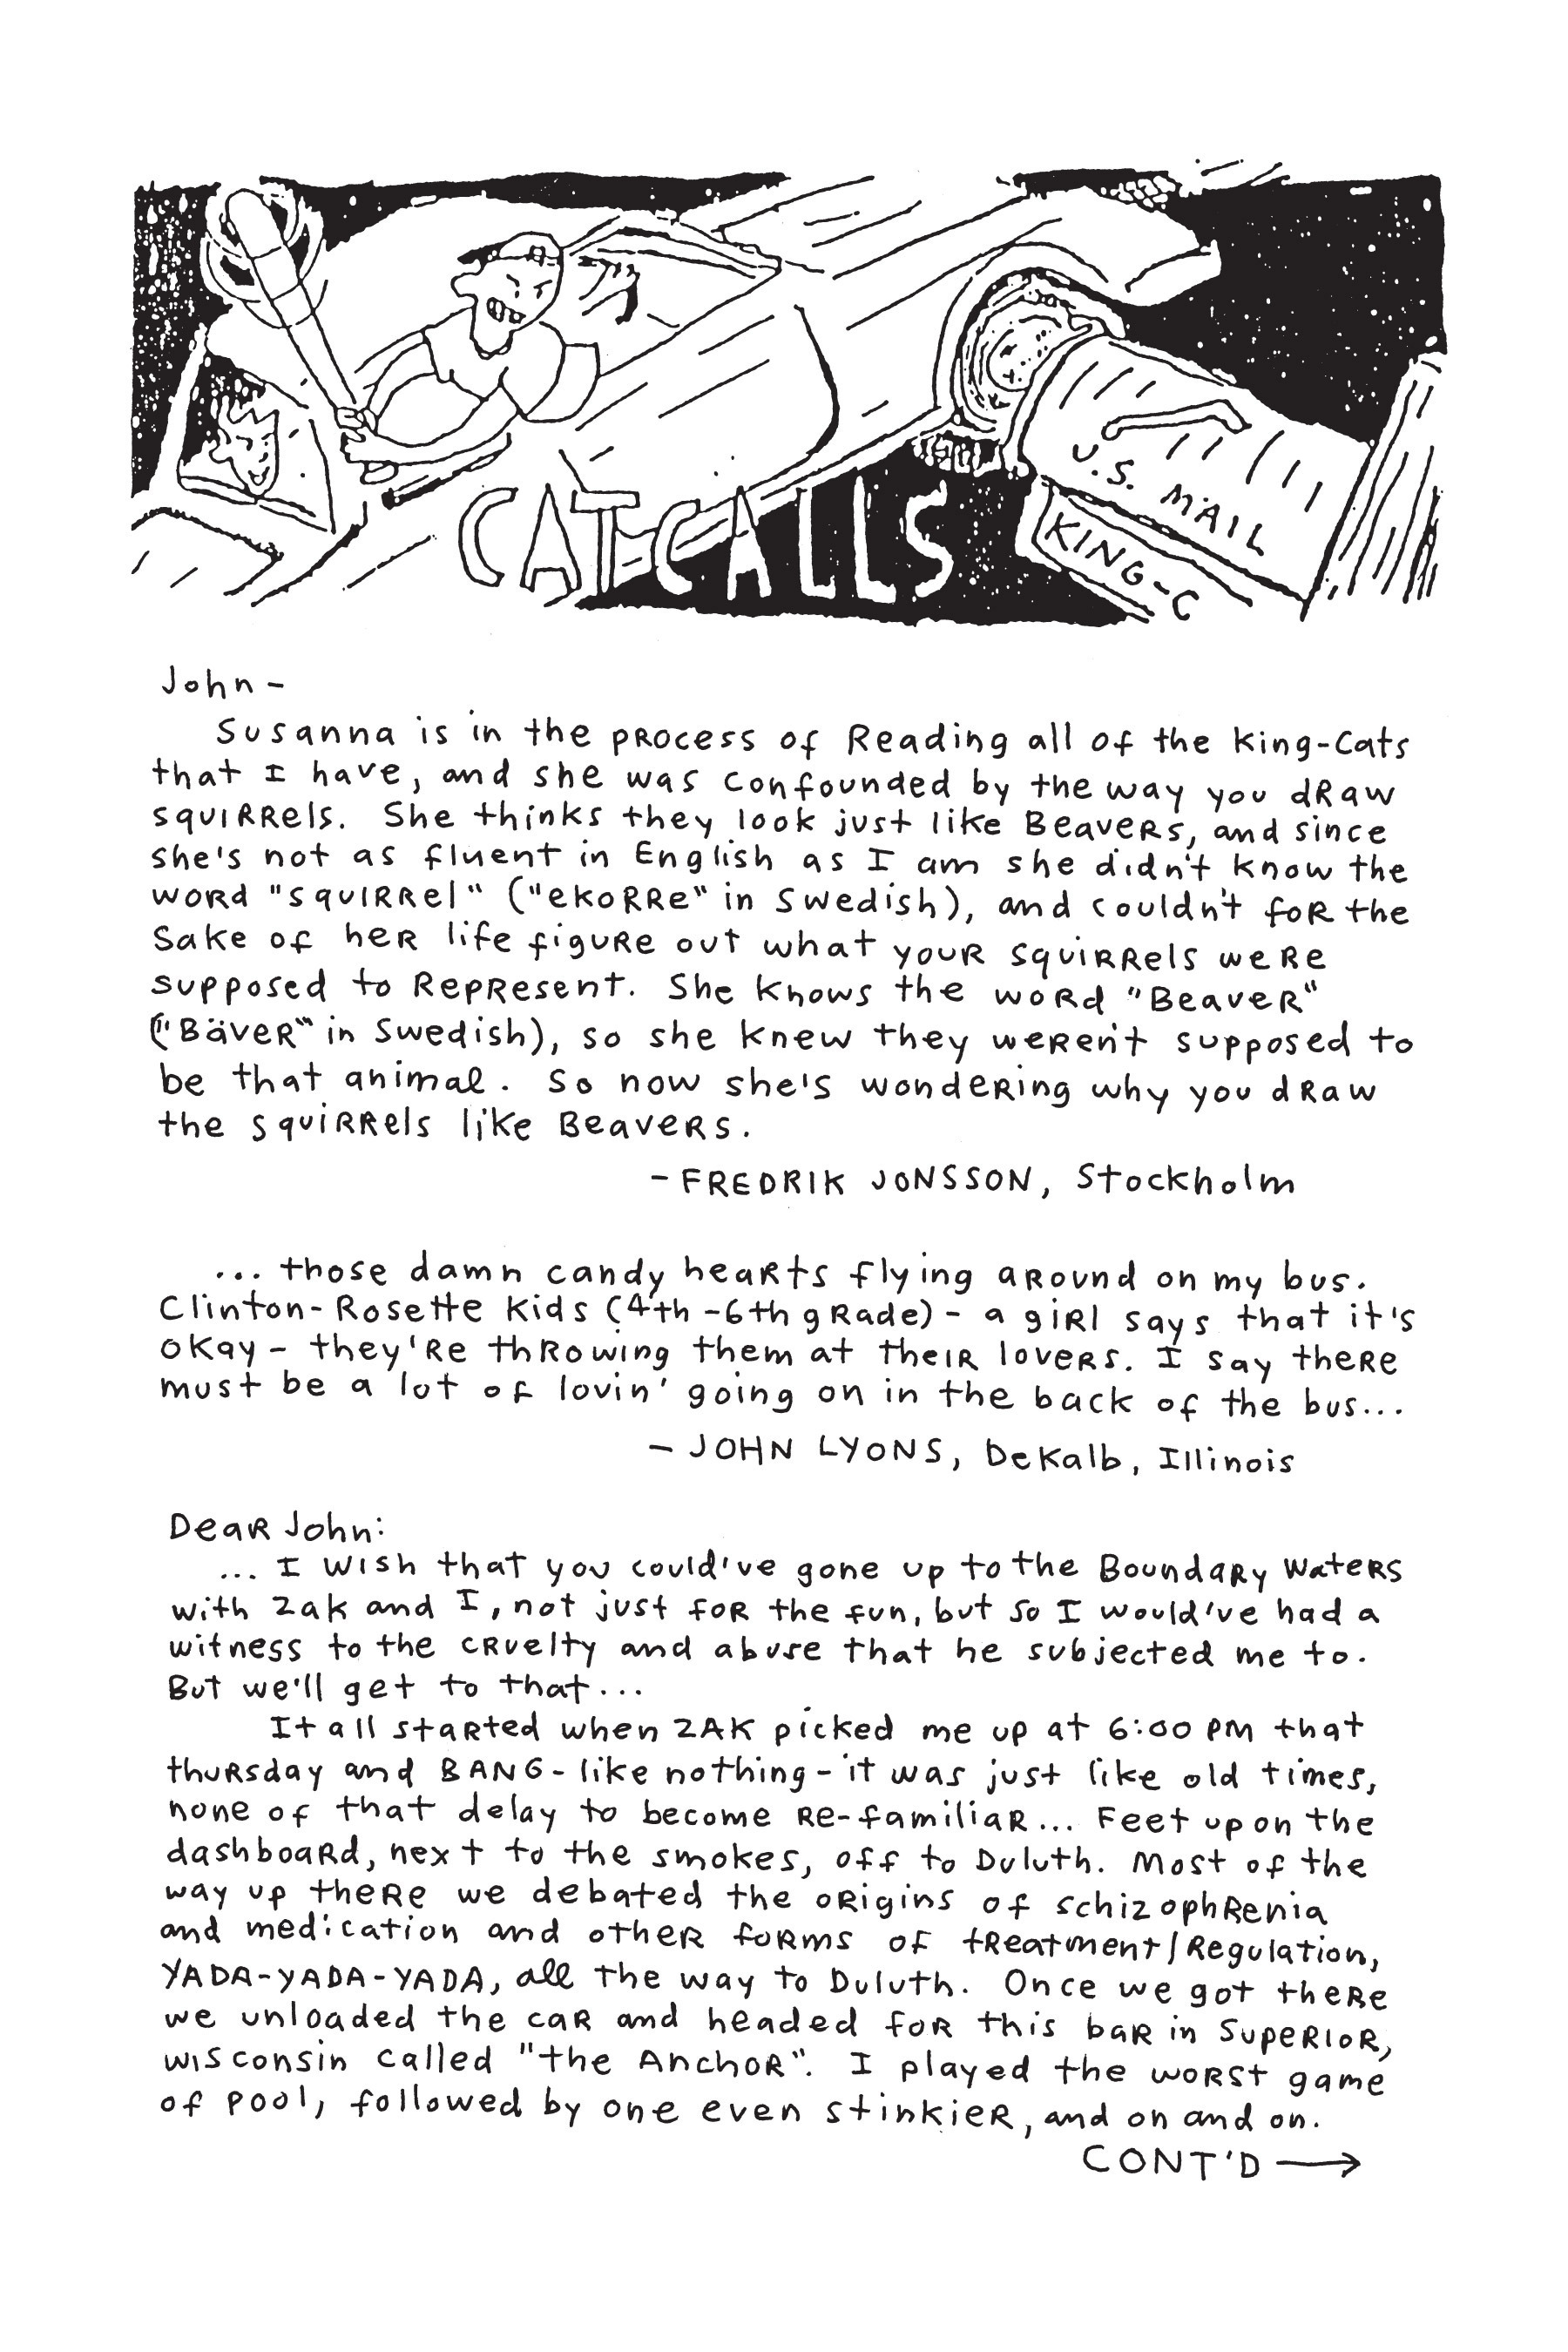 CATCALLS
U.S. MAIL
KING-C
John -
Susanna is in the process of Reading all of the King-Cats
that I have, and she was confounded by the way you draw
squirrels. She thinks they look just like Beavers, and since
she's not as fluent in English as I am she didn't know the
word "squirrel" ("ekorre" in Swedish), and couldn't for the
sake of her life figure out what your squirrels were
supposed to Represent. She knows the word "Beaver"
("Bäver" in Swedish), so she knew they weren't supposed to
be that animal. So now she's wondering why you draw
the squirrels like Beavers.
- FREDRIK JONSSON, Stockholm
... those damn candy hearts flying around on my bus.
Clinton-Rosette Kids (4th-6th grade) - a girl says that it's
okay - they're throwing them at their lovers. I say there
must be a lot of lovin' going on in the back of the bus...
- JOHN LYONS, DeKalb, Illinois
Dear John:
... I wish that you could've gone up to the Boundary Waters
with Zak and I, not just for the fun, but so I would've had a
witness to the cruelty and abuse that he subjected me to.
But we'll get to that...
It all started when ZAK picked me up at 6:00 PM that
thursday and BANG - like nothing - it was just like old times,
none of that delay to become re-familiar... Feet up on the
dashboard, next to the smokes, off to Duluth. Most of the
way up there we debated the origins of schizophrenia
and medication and other forms of treatment/Regulation,
YADA-YADA-YADA, all the way to Duluth. Once we got there
we unloaded the car and headed for this bar in Superior,
Wisconsin called "the Anchor". I played the worst game
of pool, followed by one even stinkier, and on and on.
CONT'D →